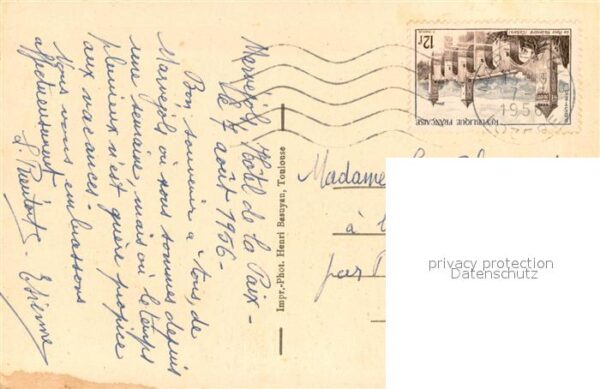 Marvejols Hôtel de la Paix -
le 7 août 1956 -
Bon souvenir à tous de
Marvejols où nous sommes depuis
une semaine, mais où le temps
pluvieux n'est guère propice
aux vacances -
Nous vous embrassons
affectueusement
Etienne
Impr.-Phot. Henri Basuyau, Toulouse
12f
REPUBLIQUE FRANÇAISE
1956
Madame
à
par
privacy protection
Datenschutz